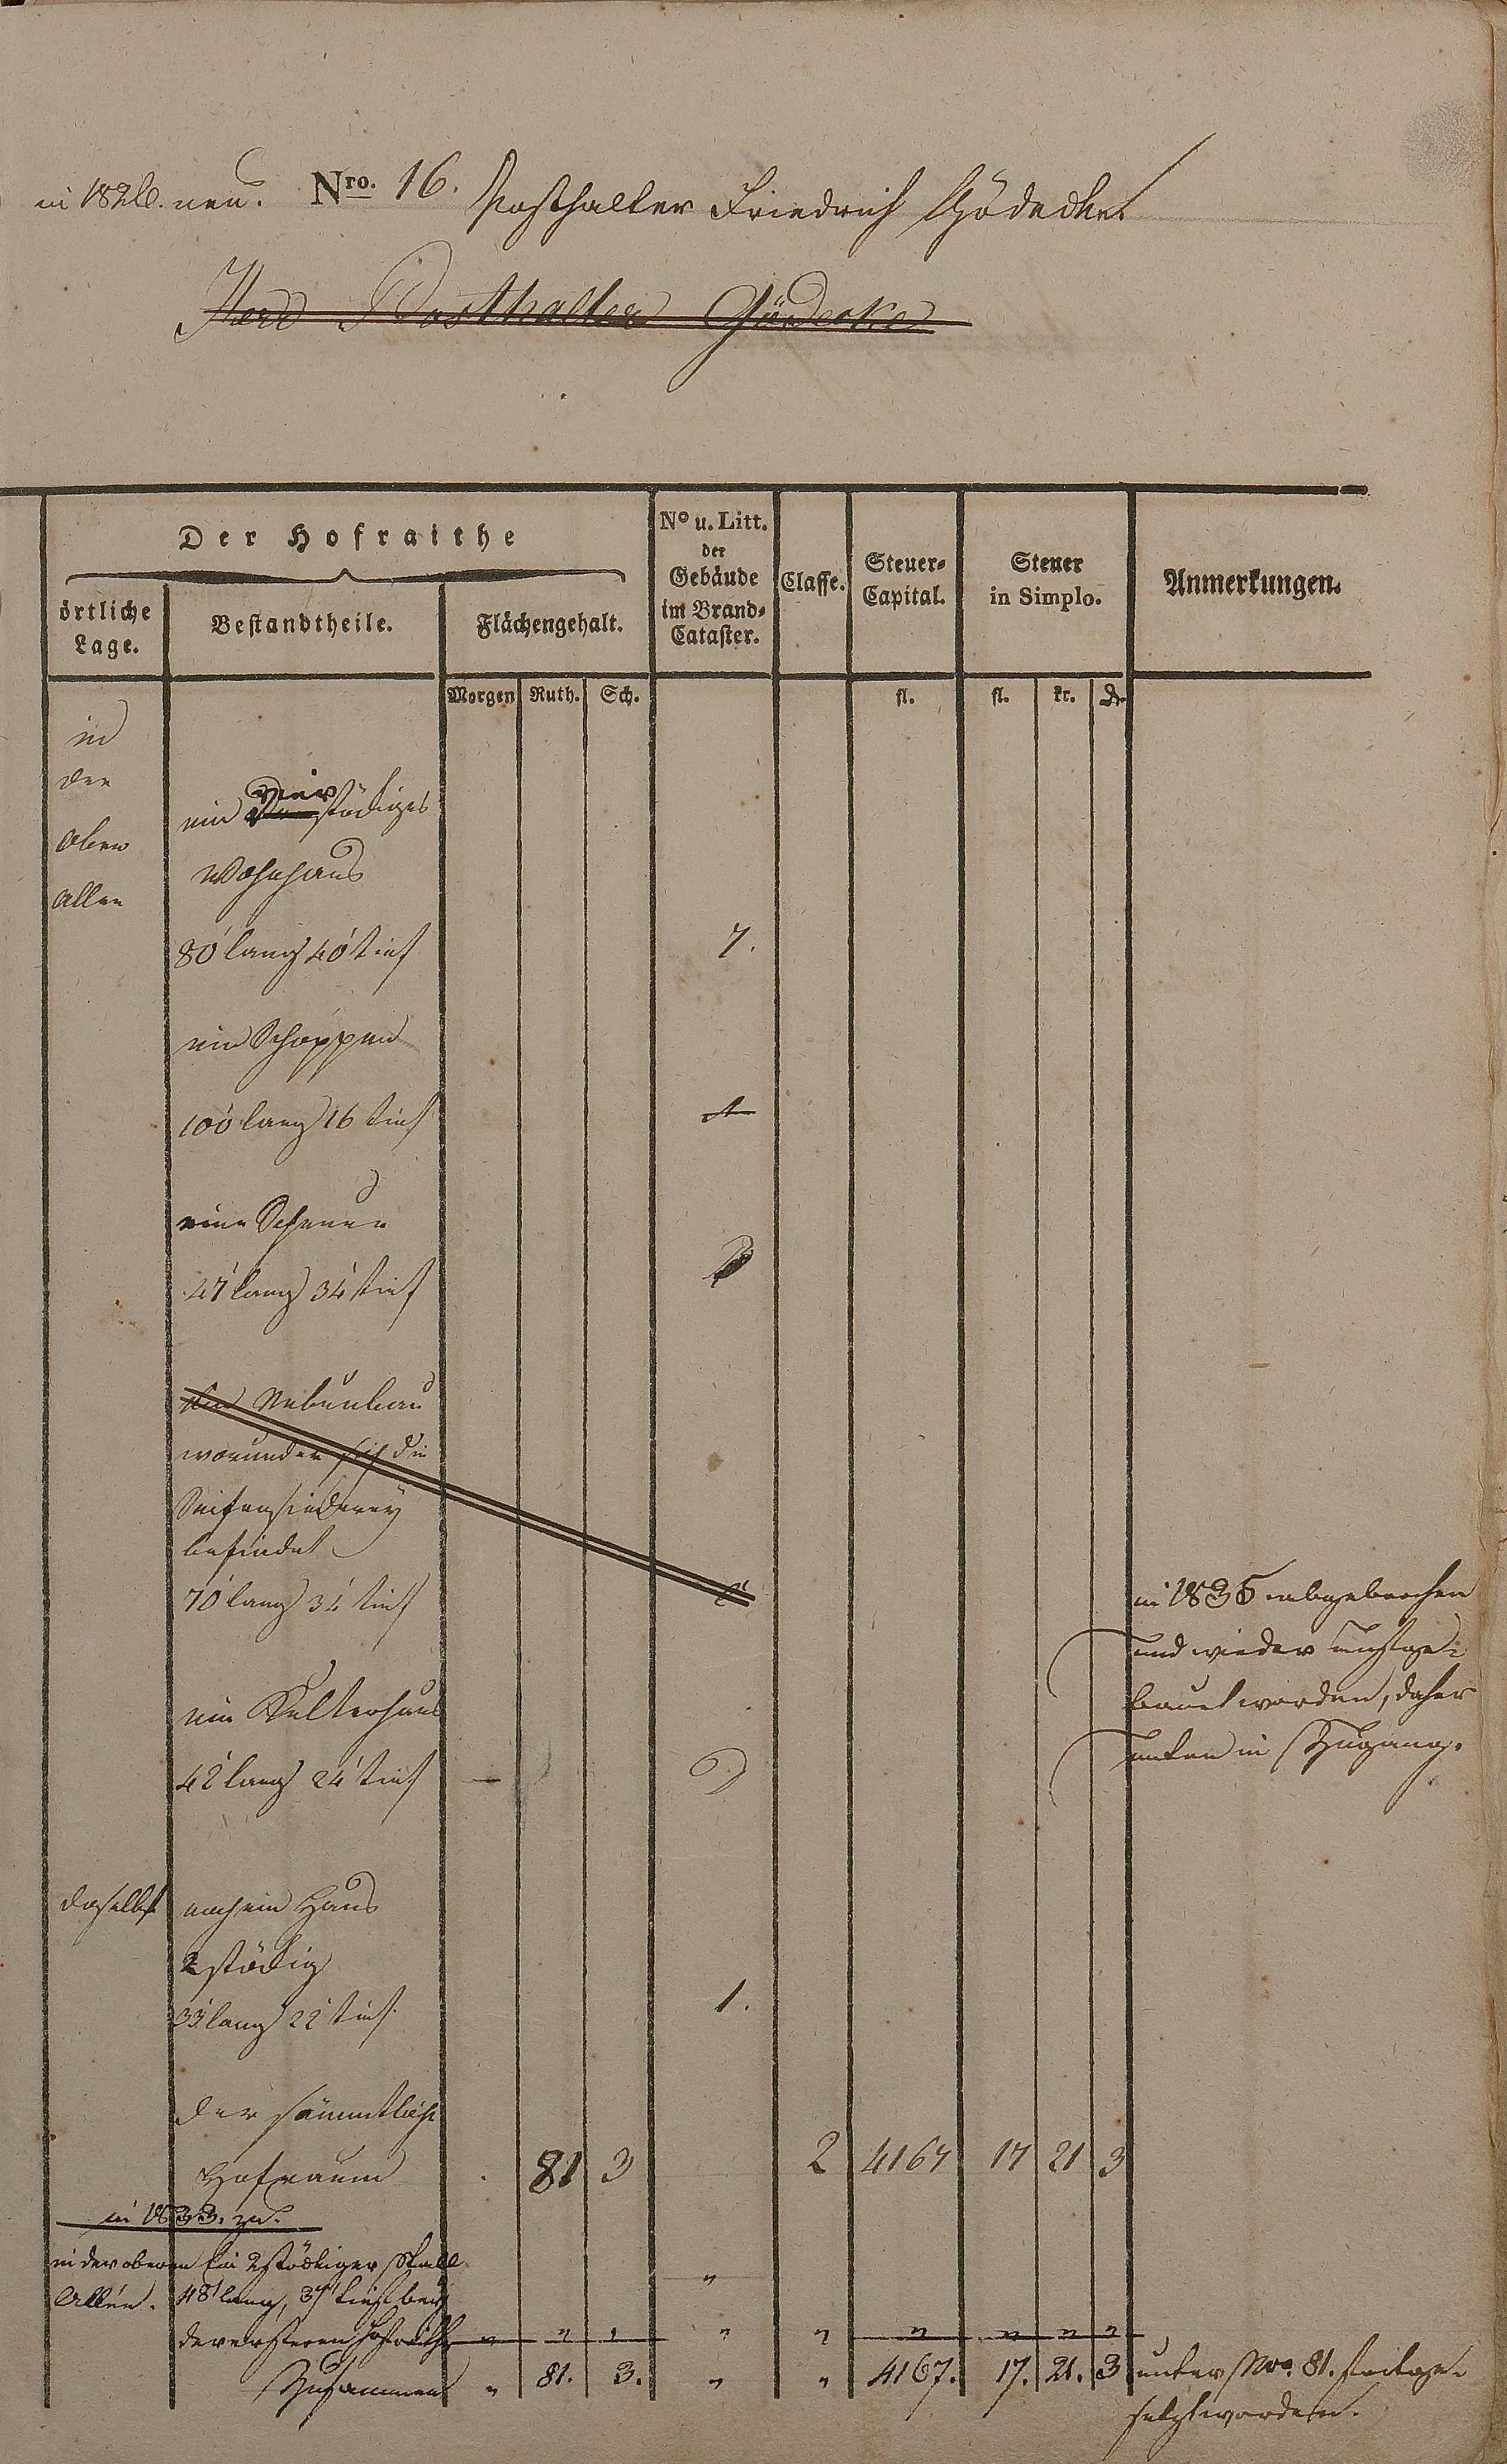 in 1826. neu. Nro. 16. Posthalter Friedrich Gödecke
Herr Posthalter Gödecke
Der Hofraithe
No u. Litt.
der
Gebäude
im Brand-
Cataster.
Classe.
Steuer-
Capital.
Steuer
in Simplo.
Anmerkungen.
örtliche
Lage.
Bestandtheile.
Flächengehalt.
Morgen Ruth. Sch. fl. fl. kr. d.
in
der
obern
Allee
vier
ein stöckiges
Wohnhaus
80' lang 40' tief 7.
ein Schoppen
100' lang 16 tief A
eine Scheuer
47' lang 34' tief B
Ein Nebenbau
worunter sich die
Seifensiederey
befindet
70' lang 34' tief C
in 1835 abgebrochen
und wieder aufge-
bauet worden, daher
unten in Zugang.
ein Kelterhaus
42' lang 24' tief D
daselbst noch ein Haus
2 stöckig
33' lang 22' tief 1.
der sämmtliche
Hofraum 81 3 2 4167 17 21 3
in 1833. zu.
in der oberen Ein 2 stöckiger Stall
Allée. 48' lang, 37' tief bei
der ersteren Hofraithe " " " " " " " " "
Zusammen " 81. 3. " " 4167. 17. 21. 3 unter Nro. 81. fortge-
setzt worden.